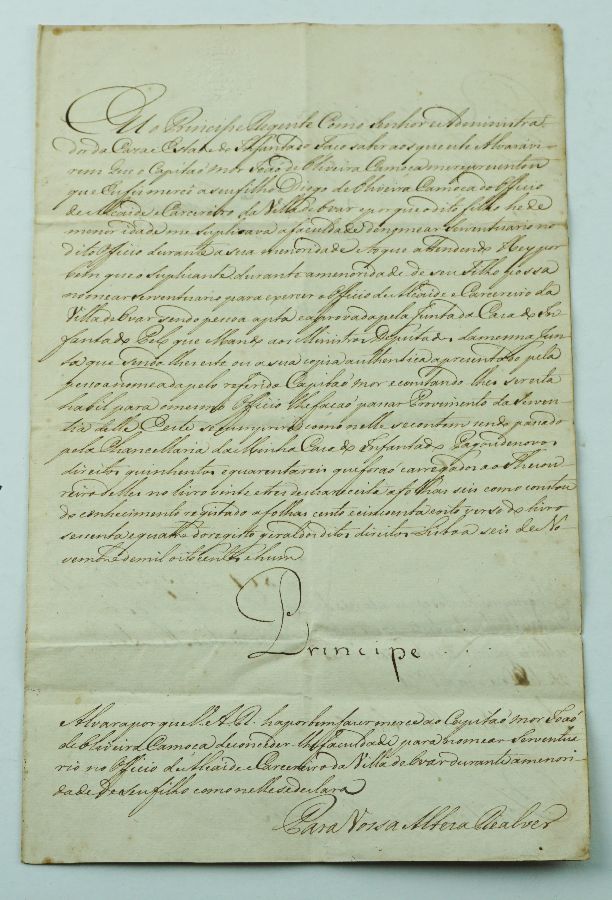 Eu o Principe Regente Como Senhor e Administra
dor da Caza e Estado do Infantado Faço saber aos que este Alvará vi
rem que o Capitaõ mor Joaõ de Oliveira Camoça me reprezentou
que Eu fiz mercê a seu filho Diogo de Oliveira Camoça do Officio
de Alcaide e Carcereiro da Villa de Ovar e porque o dito filho he de
menoridade me Suplicava a faculdade de nomear Serventuario no
dito Officio durante a sua menoridade e ao que attendendo Hey por
bem que o Suplicante durante a menoridade de seu Filho possa
nomear serventuario para exercer o Officio de Alcaide e Carcereiro da
Villa de Ovar Sendo pessoa apta e aprovada pela Junta da Caza do In
fantado Pelo que Mando aos Ministros Deputados da mesma Jun
ta que sendo lhes este ou a sua copia authentica aprezentado pela
pessoa nomeada pelo referido Capitaõ mor e constando lhes ser esta
habil para o mesmo Officio lhe façaõ passar Provimento da Serven
tia delle E este se cumprirá como nelle se contem sendo passado
pela Chancellaria da Minha Caza do Infantado Pagou de novos
direitos quinhentos e quarenta reis que foraõ carregados ao Thezou
reiro delles no livro vinte e tres de sua receita a folhas seis como constou
do conhecimento registado a folhas cento e cincoenta e oito verso do livro
sessenta e quatro do registo geral dos ditos direitos Lisboa seis de No
vembro de mil oito centos e hum
Principe
Alvará por que V. A. R. ha por bem fazer merce ao Capitaõ mor Joaõ
de Oliveira Camoça de conceder-lhe faculdade para nomear Serventua
rio no Officio de Alcaide e Carcereiro da Villa de Ovar durante a menori
dade De seu filho como nelle se declara
Para Vossa Alteza Real ver